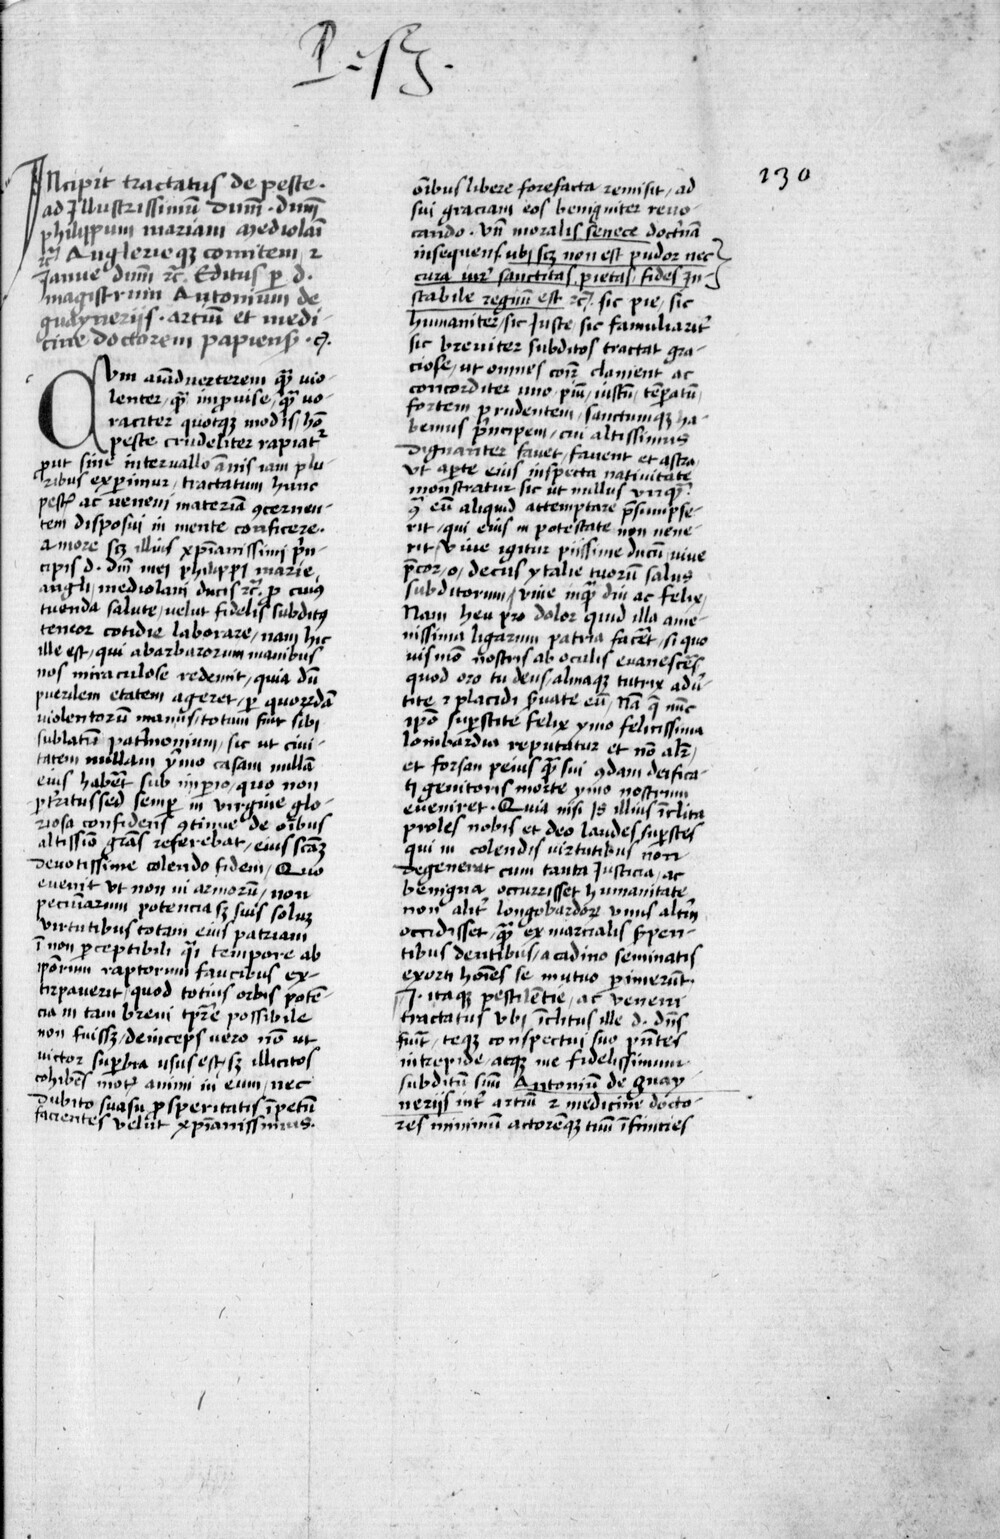 130
Incipit tractatus de peste.
ad Illustrissimū dūm̄. dūm̄
philippum mariam mediolaī
rc̄ Anglerieqꝫ comitem, ⁊
Janue dūm̄ rc̄. Editus ꝑ d.
magistrum Antonium de
guayneriis. artiū et medi-
cine doctorem papiens̄.
Cvm aīaduerterem qꝫ vio-
lenter, qꝫ improuise, qꝫ vo-
raciter quotqꝫ modis, hōi
peste crudeliter rapiatr̄
ꝓut sine interuallo ānis iam plu-
ribus experimur, tractatum hunc
pest̄ ac veneni materiā ꝯcernen-
tem disposui in mente conficere.
Amore scꝫ illius xp̄ianissimi pn̄-
cipis d. dn̄i mei philippi marie,
angli, mediolani ducis rc̄. ꝑ cuiꝰ
tuenda salute, velut fidelis subditꝰ
teneor cotidie laborare, nam hic
ille est, qui abarbarorum manibus
nos miraculose redemit, quia dū
puerilem etatem ageret, ꝑ quorūdā
violentorū manus, totum fuit sibi
sublatū patrimonium, sic ut ciui-
tatem nullam ymo casam nullā
eius habēt sub imperio, quo non
ꝑterritus sed semper in virgine glo-
riosa confidens ꝯtinue de oībus
altissīo gr̄as referebat, eius scām̄
deuotissime colendo fidem, Quo
euenit vt non ui armorū, non
pecuniarum potencia sꝫ suis soluꝫ
virtutibus totam eius patriam
ī non ꝑceptibili qͣi tempore ab
ipōrum raptorum faucibus ex-
tirpauerit, quod totius orbis potē-
cia in tam breui tp̄re possibile
non fuissꝫ, deinceps vero nō ut
victor superbia usus est, sꝫ illicitos
cohibēs motꝰ animi in eum, nec
dubito suasu ꝓsperitatis īpetū
facientes velut xp̄ianissimus.
oībus libere forefacta remisit, ad
sui graciam eos benigniter reuo-
cando. Vn̄ moralis senece doctnā
insequens ubi scꝫ non est pudor nec
cura iur̄ sanctitas, pietas, fides In-
stabile regnū est rc̄, sic pie, sic
humaniter, sic Juste, sic familiarit̄
sic breuiter subditos tractat gra-
ciose, ut omnes corr̄ clament ac
concorditer uno, piū, iustū, tēperatū,
fortem prudentem, sanctumqꝫ ha-
bemus pn̄cipem, cui altissimus
dignanter fauet, fauent et astra,
vt aperte eius inspecta natiuitate
monstratur sic ut nullus vnqꝫ
ꝯ eū aliquid attemptare p̄sumpse-
rit, qui eius in potestate non uene-
rit, Viue igitur piissime ducū, viue
p̄cor, o, decus ytalie tuorū salus
subditorum, viue inqꝫ diu ac felix,
Nam heu pro dolor quid illa ame-
nissima ligarum patria facēt, si quo
uis mō nostris ab oculis euanescēs,
quod oro tu deus, almaqꝫ tutrix adū-
tite ⁊ placidi ꝑuate eū, Nā q̄ nūc
ipō suꝑstite felix ymo felicissima
lombardia reputatur et nō alr̄,
et forsan peius qꝫ sui ꝯdam deifica-
ti genitoris morte ymo nostrum
eueniret. Quia nisi Is illius īclita
proles nobis et deo laudes suꝑstes
qui in colendis virtutibus non
degenerat cum tanta Justicia, ac
benigna occurrisset humanitate
non alit̄ longobardoꝝ vnus altm̄
occidisset, qꝫ ex marcialis serpen-
tibus dentibus, a cadmo seminatis
exorti hoīes se mutuo ꝑimerūt.
J. itaqꝫ pestilētie, ac veneni
tractatus vbi īclitus ille d. dn̄s
fuīt, teqꝫ conspectui suo pn̄tes
intrepide, atqꝫ me fidelissimum
subditū suū Antoniū de guay
neriis int̄ artiū ⁊ medicine docto-
res minimū actorēqꝫ tuū īsinues